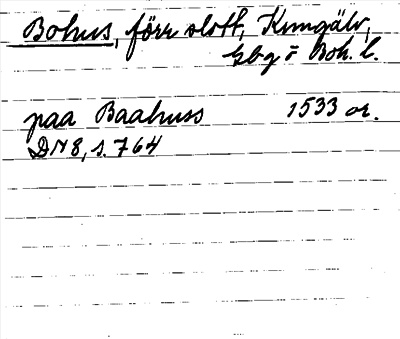 Bohus, förr slott, Kungälv,
Gbg o Boh. l.
paa Baahuss 1533 or.
DN 8, s. 764